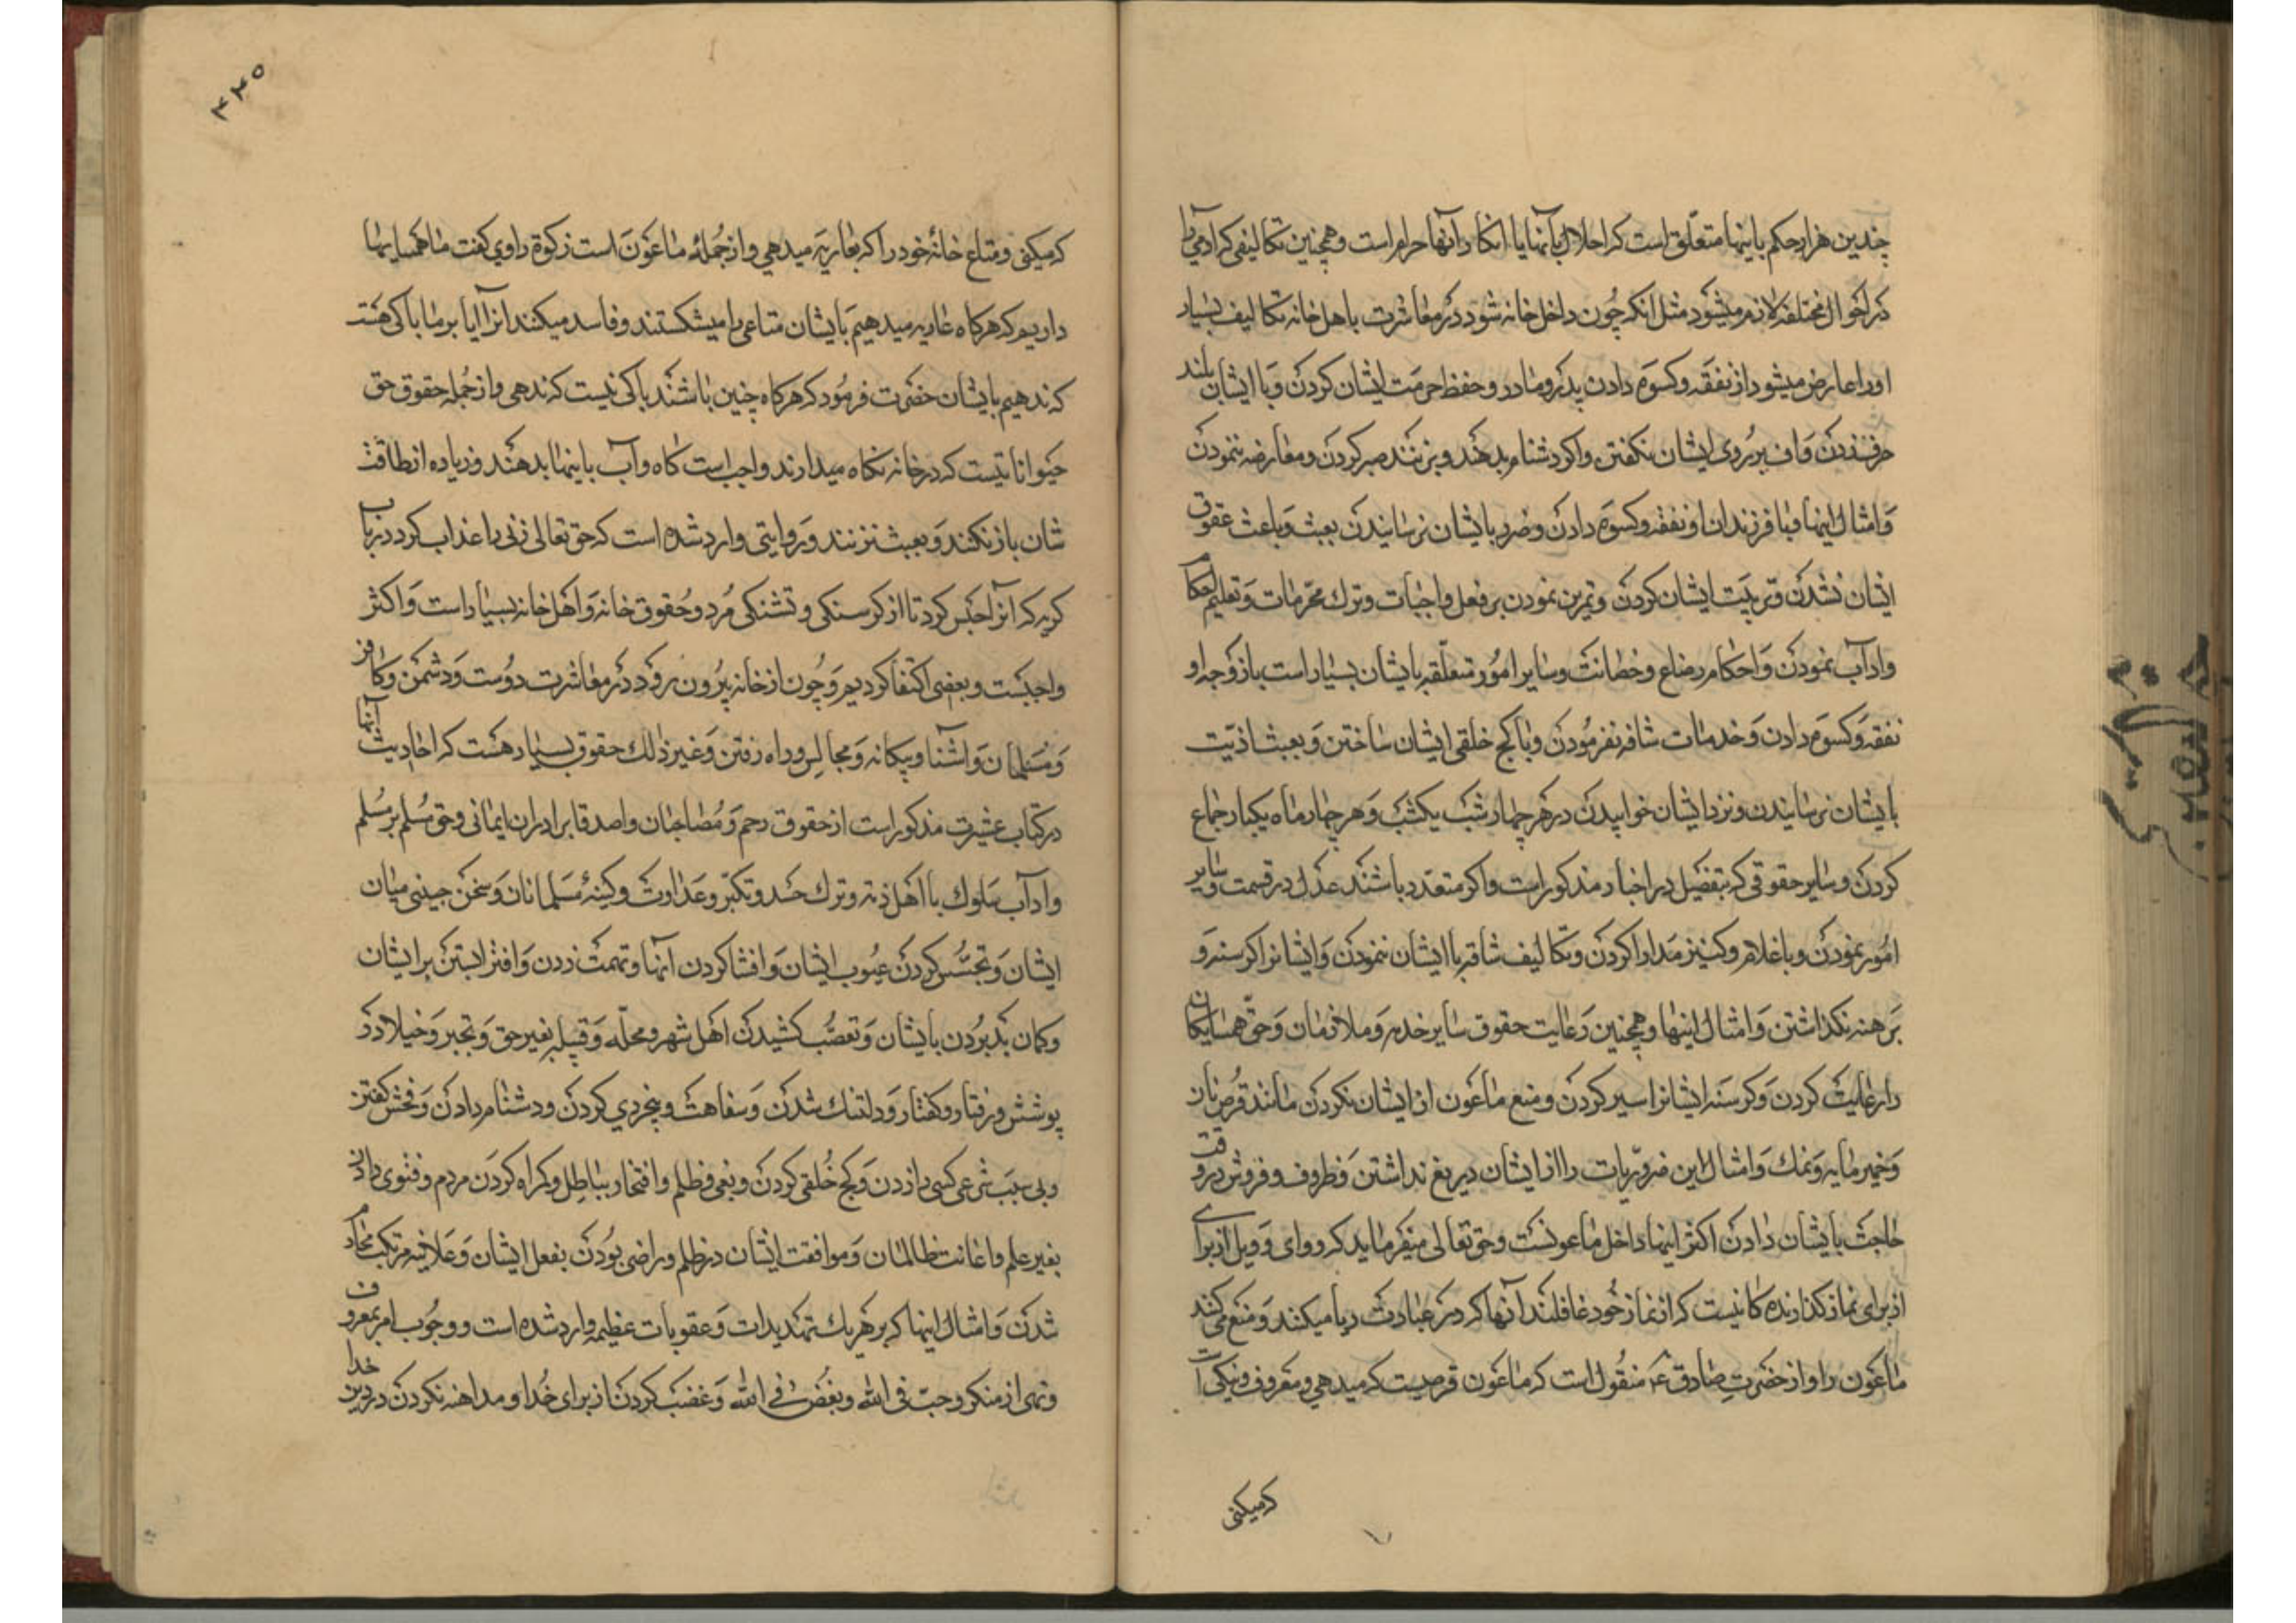 چندین هزار حکم باینها متعلّق است که اخلال بآنها یا انکار آنها حرام است و همچنین تکالیفی که آدمی را
در احوال مختلفه لازم میشود مثل انکه چون داخل خانه شود در معاشرت با هل خانه تکالیف بسیار
اورا عارض میشود از نفقه و کسوه دادن پدر و مادر و حفظ حرمت ایشان کردن و با ایشان بلند
حرف نزدن و اف بر روی ایشان نکفتن و اکر دشنام بدهند و بزنند صبر کردن و معارضه ننمودن
و امثال اینها و با فرزندان او نفقه و کسوه دادن و ضرر بایشان نرسانیدن بعبث و باعث عقوق
ایشان نشدن و تربیت ایشان کردن و تمرین نمودن بر فعل واجبات و ترك محرّمات و تعلیم احکام
و آداب نمودن و احکام رضاع و حضانت و سایر امور متعلّقه بایشان بسیار است با زوجه او
نفقه و کسوه دادن و خدمات شاقه نفرمودن و با کج خلقی ایشان ساختن و بعبث اذیّت
بایشان نرسانیدن و نزد ایشان خوابیدن در هر چهار شب یکشب و هر چهار ماه یکبار جماع
کردن و سایر حقوقی که بتفصیل در اخبار مذکور است و اکر متعدّد باشند عدل در قسمت و سایر
امور نمودن و با غلام و کنیز مدارا کردن و تکالیف شاقه با ایشان ننمودن و ایشانرا کرسنه و
برهنه نکذاشتن و امثال اینها و همچنین رعایت حقوق سایر خدم و ملازمان و حقّ همسایکان
را رعایت کردن و کرسنه ایشانرا سیر کردن و منع ماعون از ایشان نکردن مانند قرص نان
و خمیر مایه و نمك و امثال این ضروریّات را از ایشان دریغ نداشتن و ظروف و فروش در وقت
حاجت بایشان دادن اکثر اینها داخل ماعونست و حق تعالی میفرماید که و وای و ویل از برای
از برای نماز کذارنده کانیست که از نماز خود غافلند آنها که در عبادت ریا میکنند و منع می کنند
ماعون را و از حضرت صادق ع منقول است که ماعون قرضیست که میدهی و معروف و نیکی است
که میکنی
۳۳۵
که میکنی و متاع خانه خود را که بعاریه میدهی و از جمله ماعون است زکوة راوی کفت ما همسایها
داریم که هرکاه عاریه میدهیم بایشان متاعی را میشکستند و فاسد میکنند انرا آیا بر ما باکی هست
که ندهیم بایشان حضرت فرمود که هرکاه چنین باشند باکی نیست که ندهی و از جمله حقوق حق
حیواناتیست که در خانه نکاه میدارند واجب است کاه و آب باینها بدهند و زیاده از طاقت
شان باز نکنند و بعبث نزنند و روایتی وارد شده است که حق تعالی زنی را عذاب کرد در باب
کربه که آنرا حبس کرد تا از کرسنکی و تشنکی مُرد و حُقوق خانه و اهل خانه بسیار است و اکثر
واجبست و بعضی اکتفا کردیم و چون از خانه بیرون رود در معاشرت دوست و دشمن و کافر
و مسلمان و اشنا و بیکانه و مجالس و راه رفتن و غیر ذلك حقوق بسیار هست که احادیث آنها
در کتاب عشرت مذکور است از حقوق رحم و مصاحبان و اصدقا برادران ایمانی و حق مُسلم بر مُسلم
و آداب سلوك با اهل ذمه و ترك حسد و تکبّر و عداوت و کینهٔ مسلمانان و سخن چینی میان
ایشان و تجسّس کردن عیوب ایشان و افشا کردن آنها و تهمت زدن و افترا بستن بر ایشان
و کمان بد بردن بایشان و تعصّب کشیدن اهل شهر و محلّه و قبیله بغیر حق و تجبر و خیلا در
پوشش و رفتار و کفتار و دلتنك شدن و سفاهت و بیخردی کردن و دشنام دادن و فحش کفتن
و بی سبب شرعی کسی را زدن و کج خُلقی کردن و بغی و ظلم و افتخار بباطل و کمراه کردن مردم و فتوی دادن
بغیر علم و اعانت ظالمان و موافقت ایشان در ظلم و راضی بودن بفعل ایشان و علانیه مرتکب محارم
شدن و امثال اینها که بر هر یك تهدیدات و عقوبات عظیمه وارد شده است و وجُوب امر بمعروف
و نهی از منکر و حبّ فی الله و بغض فی الله و غضب کردن از برای خُدا و مداهنه نکردن در دین خدا